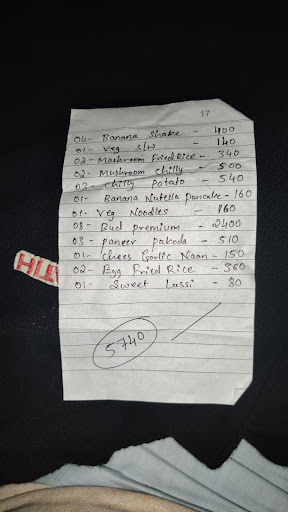 17
04- Banana Shake - 400
01- Veg S/W - 140
02- Mashroom Fried Rice - 340
02- Mushroom chilly - 500
03- chilly potato - 540
01- Banana Nutella pancake - 160
01- Veg Noodles - 160
08- Bud premium - 2400
03- paneer pakoda - 510
01- Chees Garlic Naan - 150
02- Egg Fried Rice - 360
01- Sweet Lassi - 80
5740